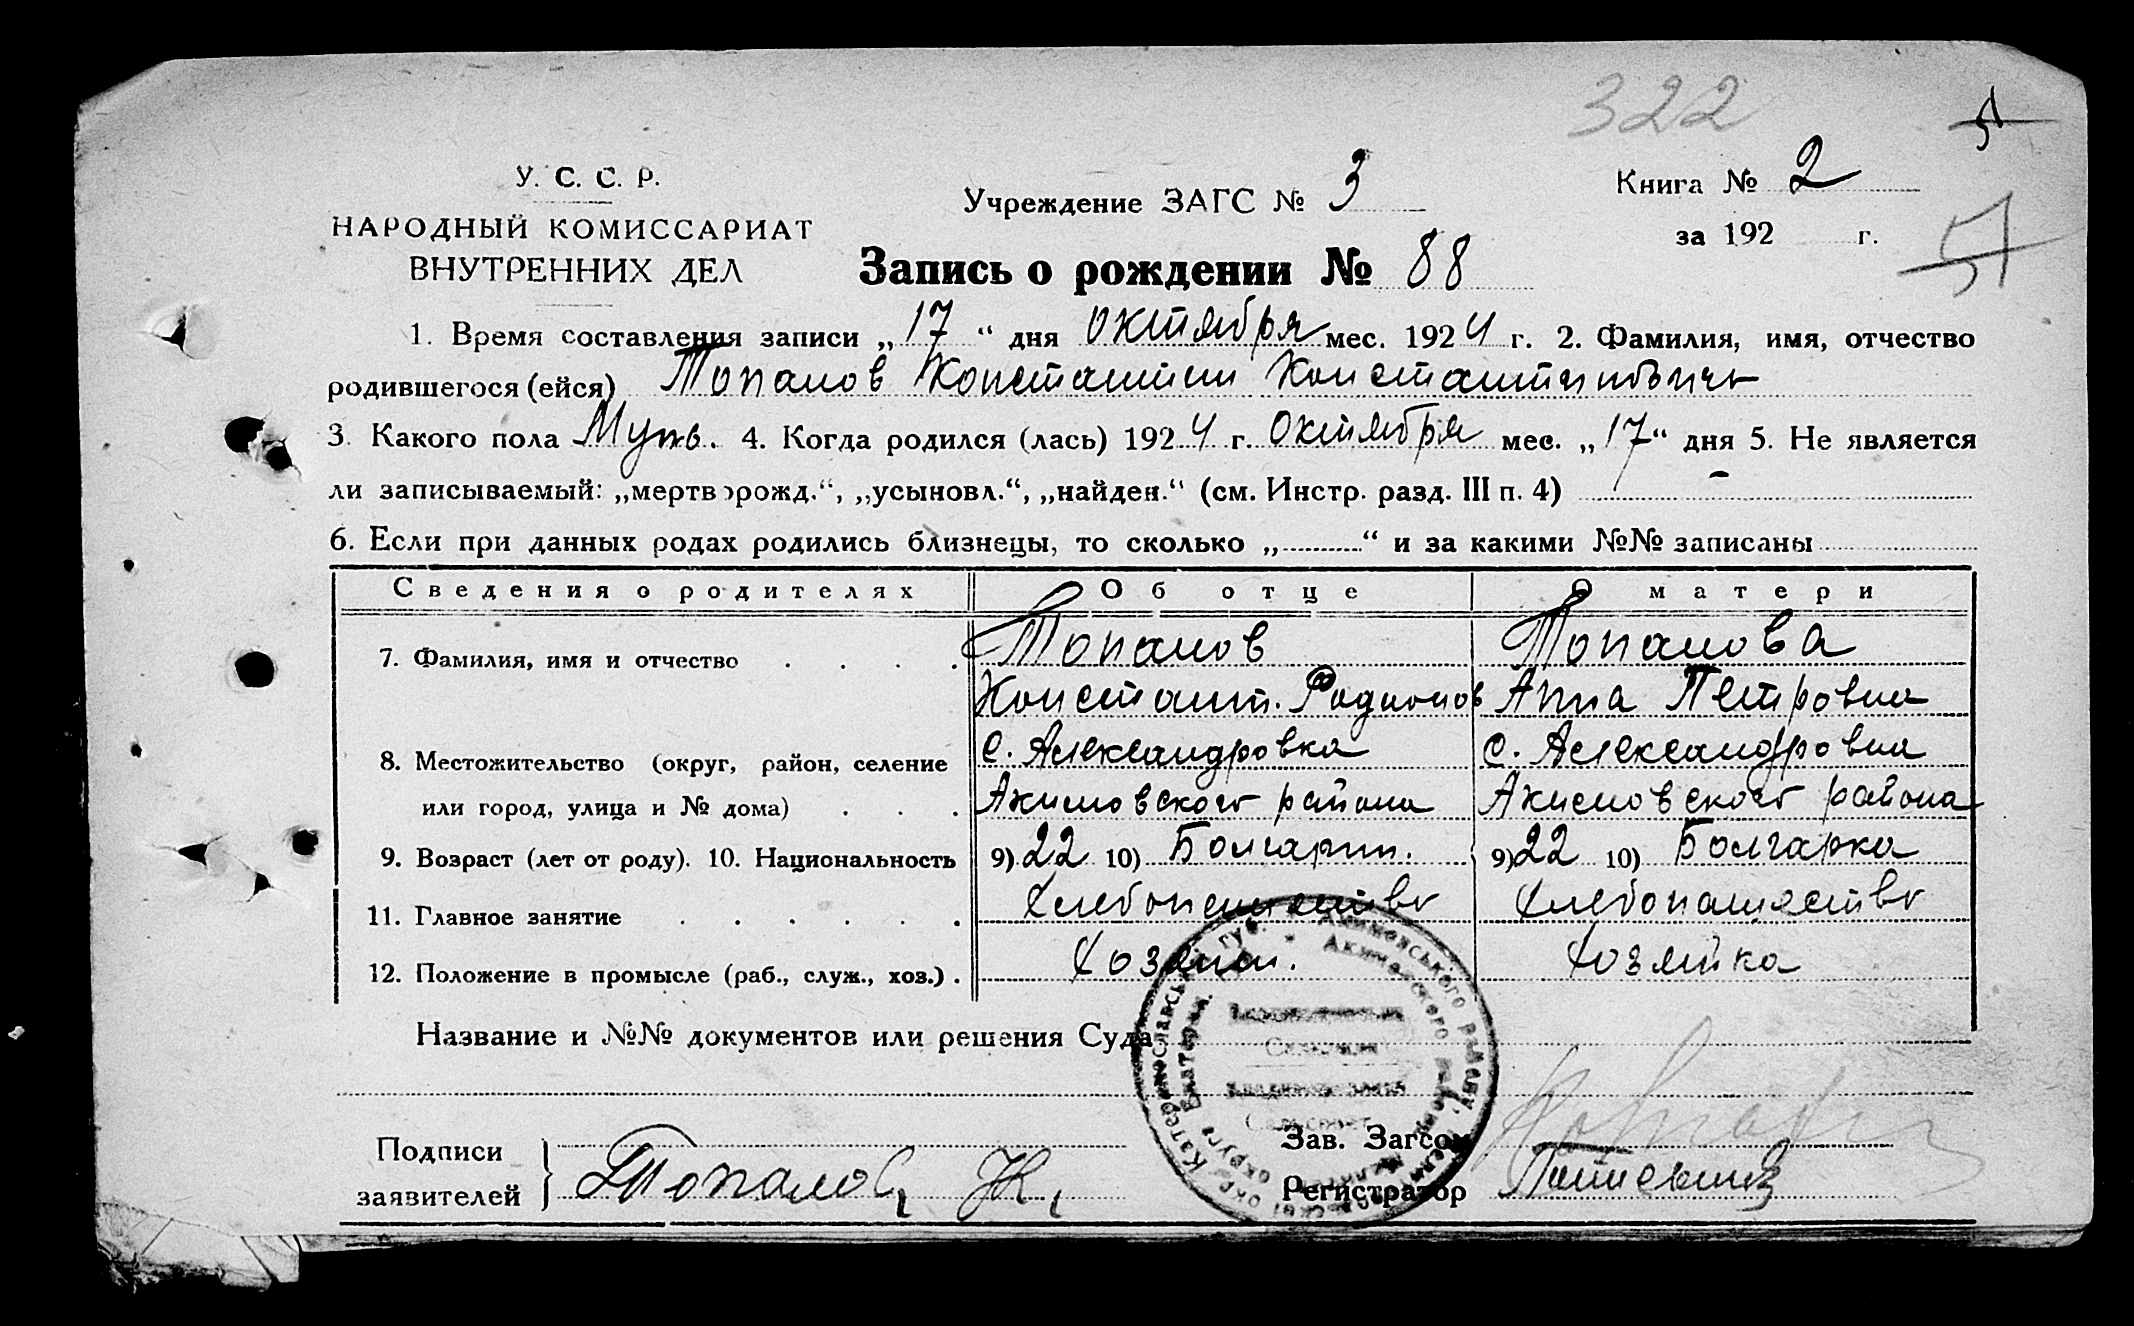 322
51
У. С. С. Р.
Учреждение ЗАГС № 3
Книга № 2
НАРОДНЫЙ КОМИССАРИАТ
за 192 г.
51
ВНУТРЕННИХ ДЕЛ
Запись о рождении № 88
1. Время составления записи „17“ дня октября мес. 1924 г. 2. Фамилия, имя, отчество
родившегося (ейся) Топалов Константин Константиновичъ
3. Какого пола Муж. 4. Когда родился (лась) 1924 г. октября мес. „17“ дня 5. Не является
ли записываемый: „мертворожд.“, „усыновл.“, „найден.“ (см. Инстр. разд. III п. 4) -
6. Если при данных родах родились близнецы, то сколько „..........“ и за какими №№ записаны
Сведения о родителях Об отце О матери
7. Фамилия, имя и отчество Топалов Топалова
Констант. Родионов Анна Петровна
8. Местожительство (округ, район, селение с. Александровка с. Александровка
или город, улица и № дома) Акимовского района Акимовского района
9. Возраст (лет от роду). 10. Национальность 9) 22 10) Болгарин. 9) 22 10) Болгарка
11. Главное занятие Хлебопашество Хлебопашество
12. Положение в промысле (раб., служ., хоз.). Хозяин. Хозяйка
Название и №№ документов или решения Суда
Подписи
заявителей
Топалов К.
Зав. Загсом
Регистратор